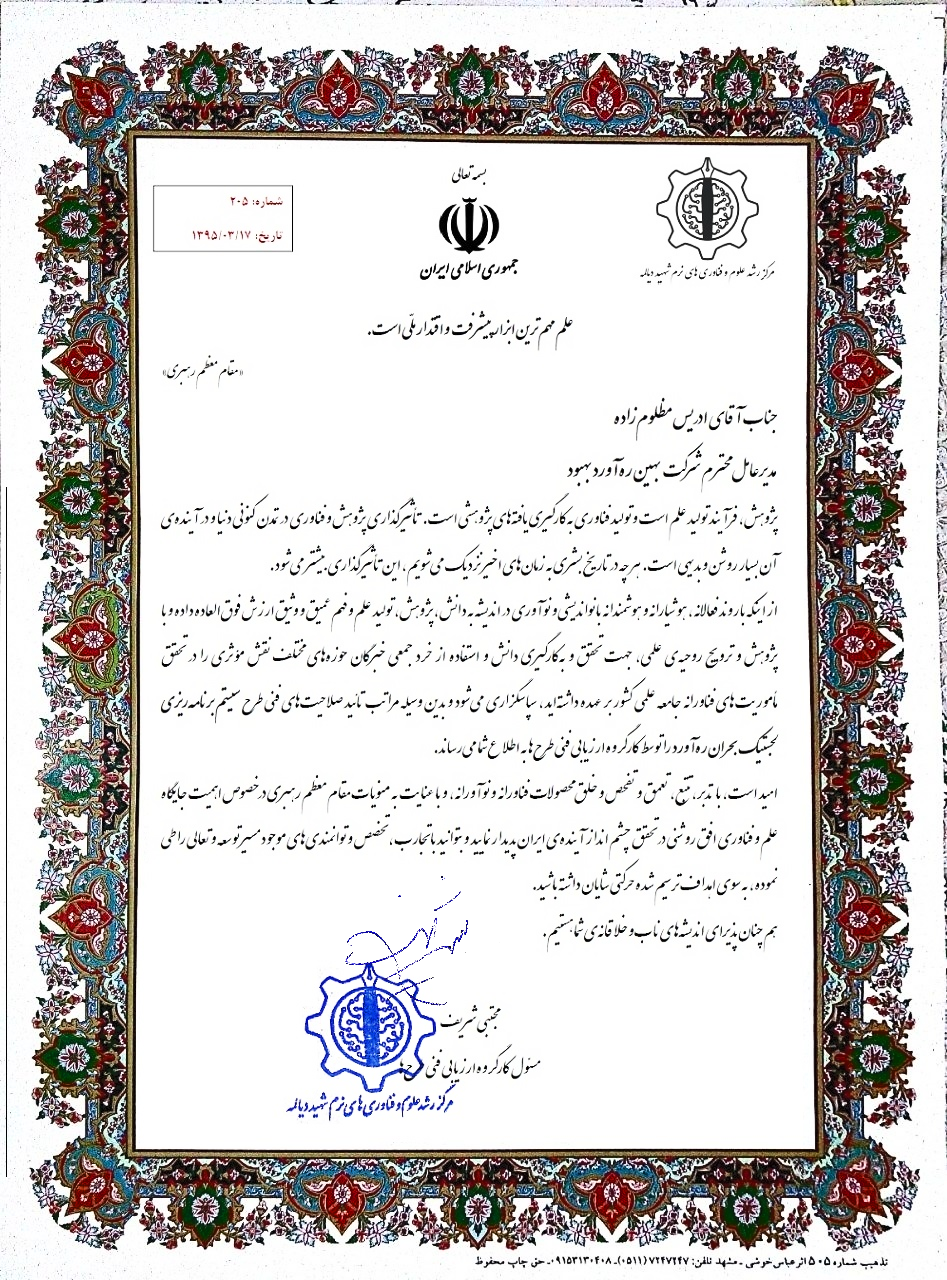 بسمه تعالی
شماره: ۲۰۵
تاریخ: ۱۳۹۵/۰۳/۱۷
جمهوری اسلامی ایران
مرکز رشد علوم و فناوری های نرم شهید دیالمه
علم مهم ترین ابزار پیشرفت و اقتدار ملّی است.
«مقام معظم رهبری»
جناب آقای ادریس مظلوم زاده
مدیرعامل محترم شرکت بهین ره آورد بهبود
پژوهش، فرآیند تولید علم است و تولید فناوری به کارگیری یافته های پژوهشی است. تأثیرگذاری پژوهش و فناوری در تمدن کنونی دنیا و در آینده ی
آن بسیار روشن و بدیهی است. هرچه در تاریخ بشری به زمان های اخیر نزدیک می شویم، این تأثیرگذاری بیشتر می شود.
از اینکه با روند فعالانه، هوشیارانه و هوشمندانه با نواندیشی و نوآوری در اندیشه به دانش، پژوهش، تولید علم و فهم عمیق و وثیق ارزش فوق العاده داده و با
پژوهش و ترویج روحیه ی علمی، جهت تحقق و به کارگیری دانش و استفاده از خرد جمعی خبرگان حوزه های مختلف نقش مؤثری را در تحقق
مأموریت های فناورانه جامعه علمی کشور بر عهده داشته اید، سپاسگزاری می شود و بدین وسیله مراتب تائید صلاحیت های فنی طرح سیستم برنامه ریزی
لجستیک بحران ره آورد را توسط کارگروه ارزیابی فنی طرح ها به اطلاع شما می رساند.
امید است، با تدبر، تتبع، تعمق و تفحص و خلق محصولات فناورانه و نوآورانه، و با عنایت به منویات مقام معظم رهبری در خصوص اهمیت جایگاه
علم و فناوری افق روشنی در تحقق چشم انداز آینده ی ایران پدیدار نمایید و بتوانید با تجارب، تخصص و توانمندی های موجود مسیر توسعه و تعالی را طی
نموده، به سوی اهداف ترسیم شده حرکتی شایان داشته باشید.
هم چنان پذیرای اندیشه های ناب و خلاقانه ی شما هستیم.
مجتبی شریف
مسئول کارگروه ارزیابی فنی طرح ها
مرکز رشد علوم و فناوری های نرم شهید دیالمه
تذهیب شماره ۵۰۵ اثر عباس خوشی - مشهد تلفن: ۷۲۴۷۲۴۷ (۰۵۱۱) - ۰۹۱۵۳۱۳۰۴۰۸ - حق چاپ محفوظ